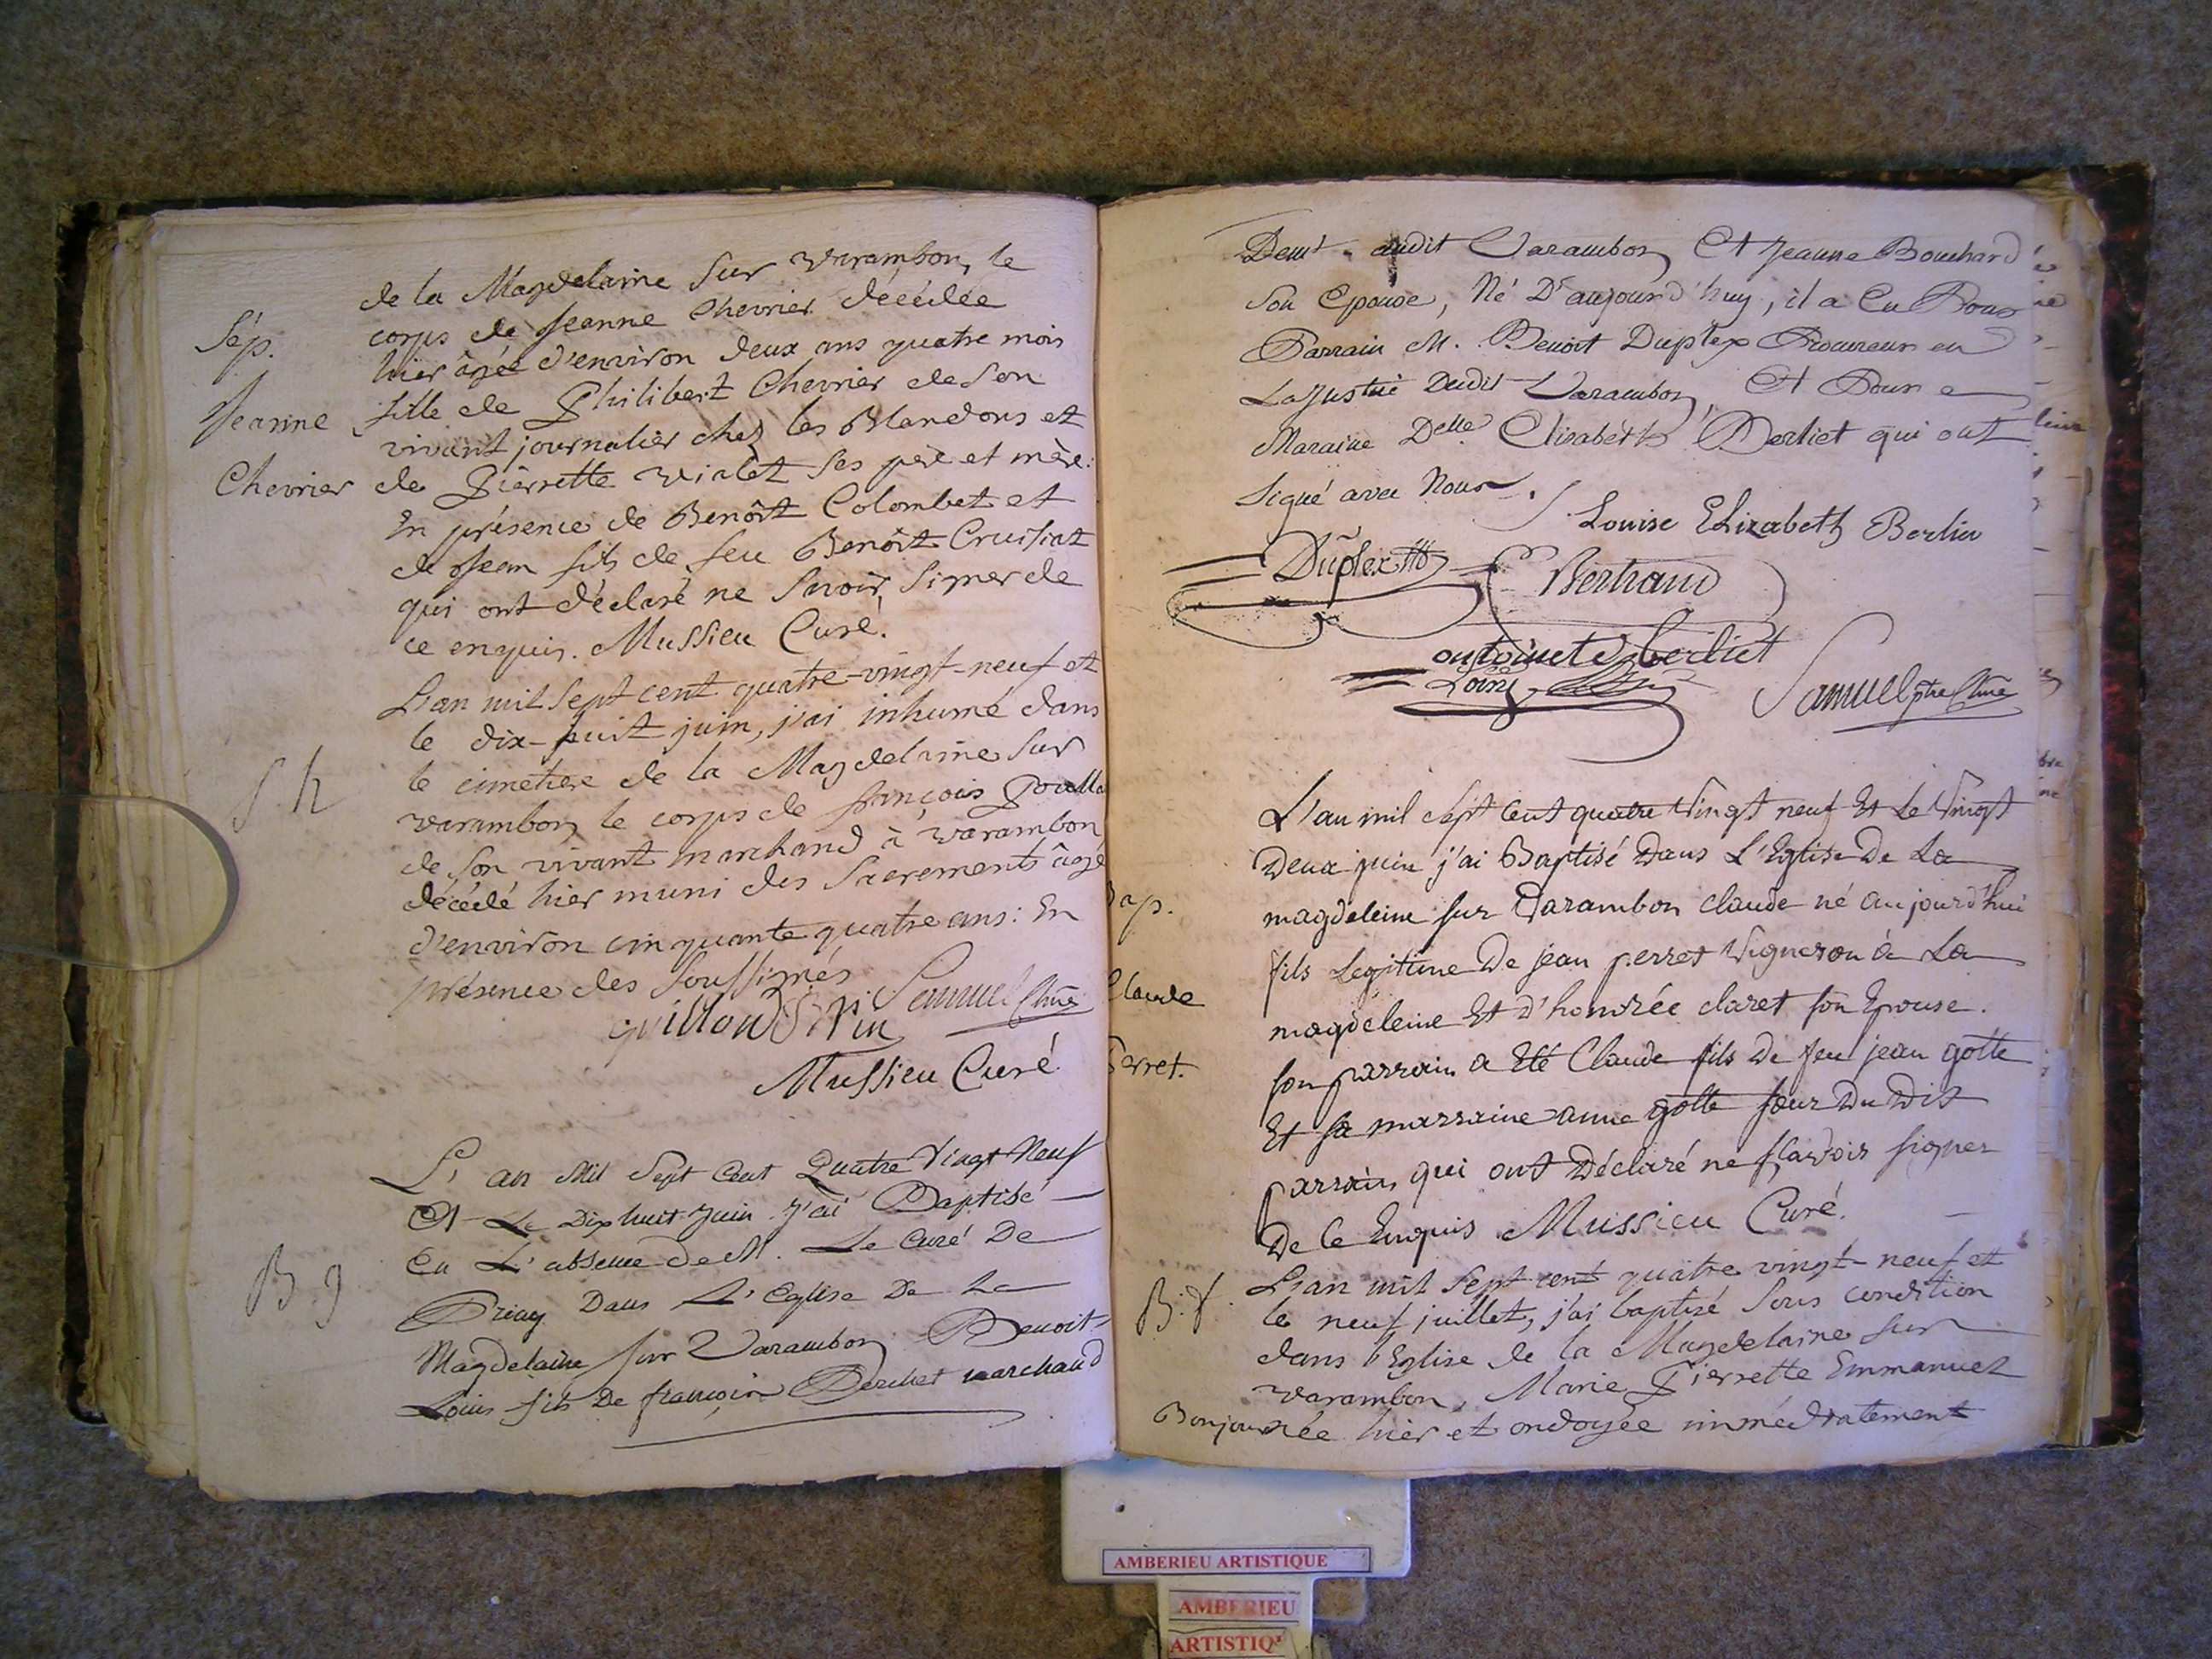 de la Magdelaine sur varambon, le
corps de Jeanne Chevrier décédée
hier âgée d'environ deux ans quatre mois
fille de Philibert Chevrier de son
vivant journalier chez les Blandons et
de Pierrette violet ses père et mère:
En présence de Benôit Colombet et
de Jean fils de feu Benôit Cruisiat
qui ont déclaré ne savoir signer de
ce enquis. Mussieu Curé.
Sép.
Jeanne
Chevrier
L'an mil sept cent quatre-vingt-neuf et
le dix-huit juin, j'ai inhumé dans
le cimetiere de la Magdelaine sur
varambon, le corps de françois
de son vivant marchand à varambon
décédé hier muni des sacrements âgé
d'environ cinquante quatre ans: En
présence des soussignés
S. h
guillon Samuel
Mussieu Curé
L'an Mil Sept Cent Quatre Vingt Neuf
Et Le Dix huit Juin J'ai Baptisé
En L'absence de M. Le Curé De
Priay Dans L'Eglise De La
Magdelaine sur Varambon Benoit
Louis fils De françois marchand
B. g
Demt audit Varambon Et Jeanne Bouchard
Son Epouse, Né D'aujourd'huy, il a Eu Pour
Parrain M. Benoit Duplex Procureur en
La Justice Dudit Varambon, Et Pour
Maraine Delle Elisabeth Berliet qui ont
Signé avec Nous.
Louise Elizabeth Berlier
Duplex
Bertrand
antoinete berliet
Samuel ptre
L'an mil sept cent quatre vingt neuf Et Le Vingt
Deux juin j'ai Baptisé Dans L'Eglise De La
magdeleine sur Varambon claude né aujourd'hui
fils Legitime De jean perret Vigneron à La
magdeleine Et d'honorée claret son Epouse.
son parrain a Eté Claude fils De feu jean gotte
Et sa marraine anne gotte soeur Du Dit
parrain, qui ont Déclaré ne sçavoir signer
De Ce Enquis Mussieu Curé.
Bap.
Claude
Perret.
L'an mil sept cent quatre vingt-neuf et
le neuf juillet, j'ai baptisé sous condition
dans l'Eglise de la Magdelaine sur
varambon, Marie Pierrette Emmanuel
Bonjour née hier et ondoyée immédiatement
AMBERIEU ARTISTIQUE
AMBERIEU
ARTISTIQ